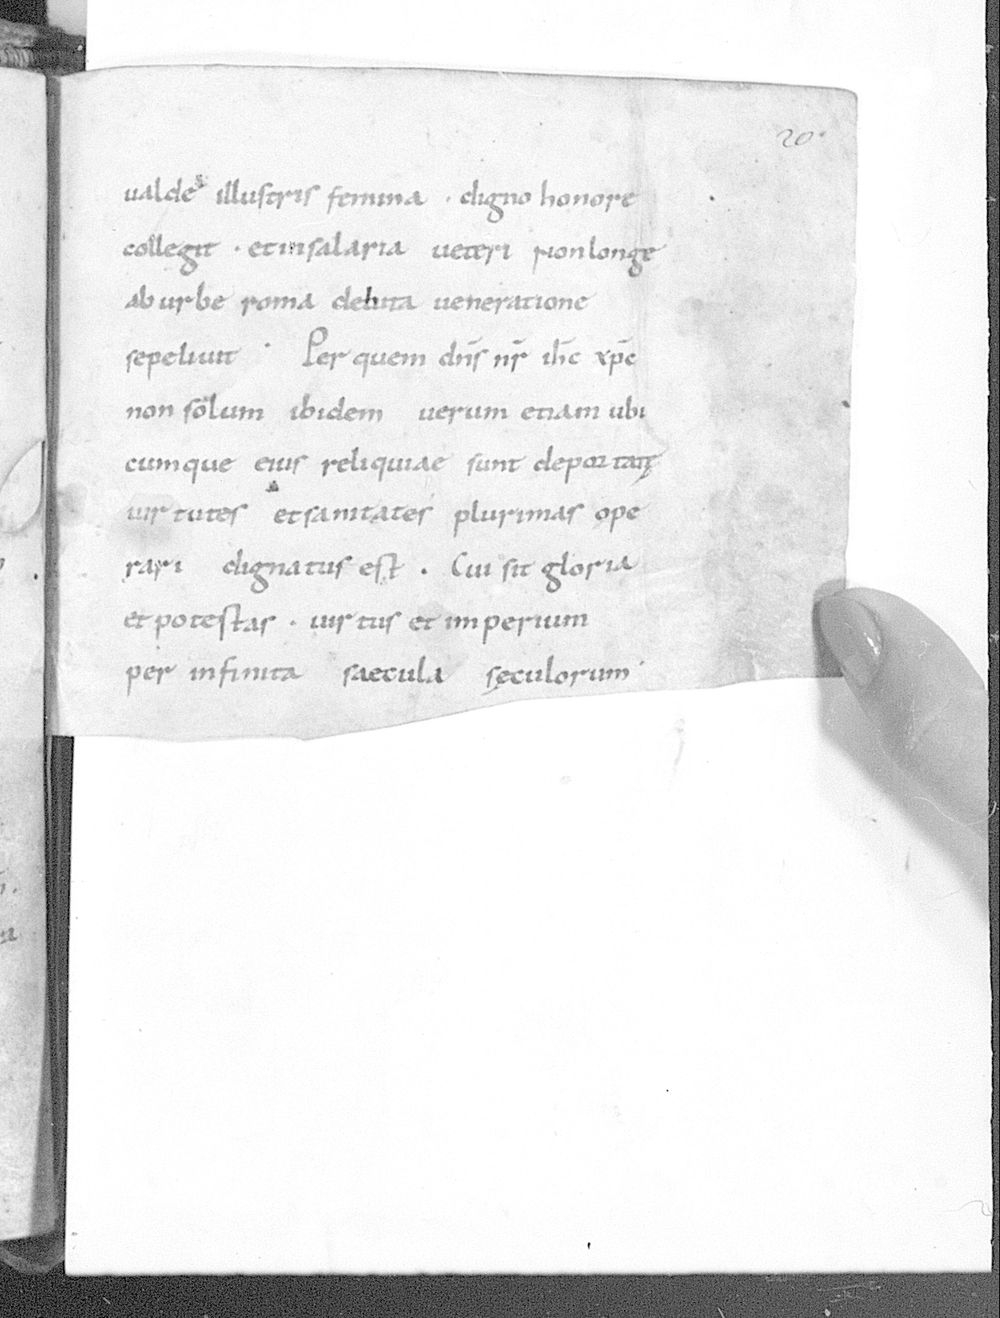 20
ualde illustris femina · digno honore
collegit · et in salaria ueteri non longe
ab urbe roma debita ueneratione
sepeliuit · Per quem dn̄s nr̄ ih̄c xp̄c
non solum ibidem uerum etiam ubi
cumque eius reliquiae sunt deportatę
uirtutes et sanitates plurimas ope
rari dignatus est . Cui sit gloria
et potestas · uirtus et imperium
per infinita saecula sęculorum